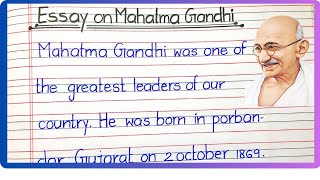 Essay on Mahatma Gandhi
Mahatma Gandhi was one of
the greatest leaders of our
country. He was born in porban-
dar Gujarat on 2 october 1869.